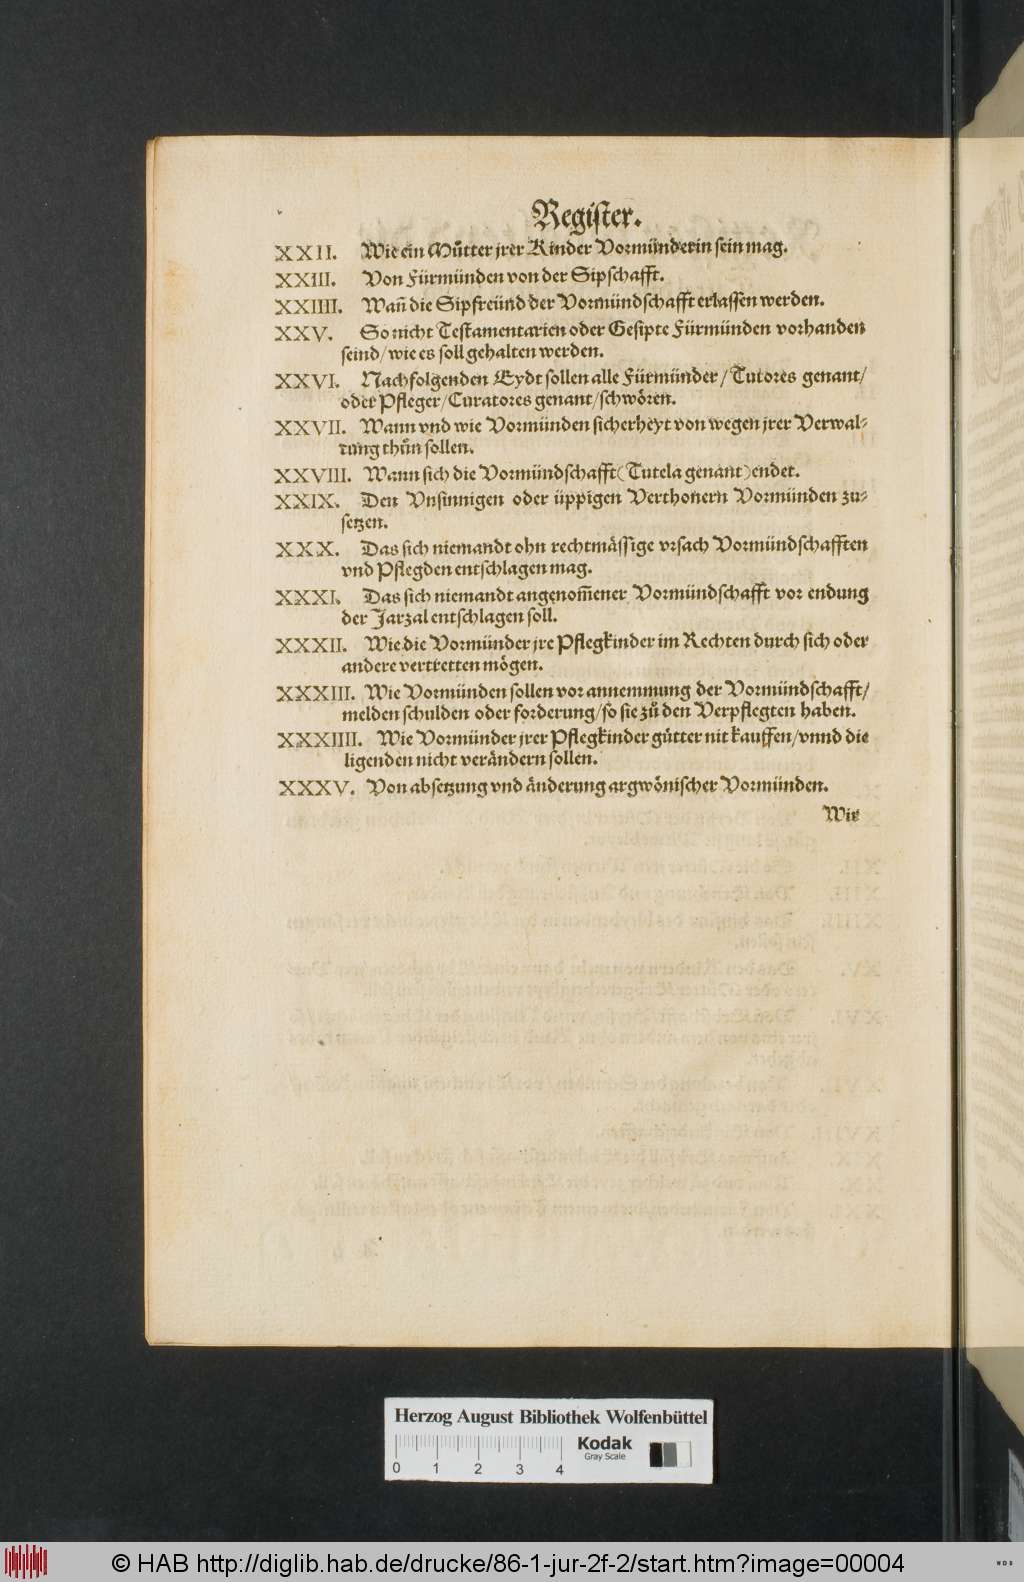 Register.
XXII. Wie ein Můtter jrer Kinder Vormünderin sein mag.
XXIII. Von Fürmünden von der Sipschafft.
XXIIII. Wañ die Sipfreünd der Vormündschafft erlassen werden.
XXV. So nicht Testamentarien oder Gesipte Fürmünden vorhanden
seind/wie es soll gehalten werden.
XXVI. Nachfolgenden Eydt sollen alle Fürmünder/Tutores genant/
oder Pfleger/Curatores genant/schwören.
XXVII. Wann vnd wie Vormünden sicherheyt von wegen jrer Verwal-
tung thůn sollen.
XXVIII. Wann sich die Vormündschafft (Tutela genant) endet.
XXIX. Den Vnsinnigen oder üppigen Verthonern Vormünden zu-
setzen.
XXX. Das sich niemandt ohn rechtmässige vrsach Vormündschafften
vnd Pflegden entschlagen mag.
XXXI. Das sich niemandt angenom̃ener Vormündschafft vor endung
der Jarzal entschlagen soll.
XXXII. Wie die Vormünder jre Pflegkinder im Rechten durch sich oder
andere vertretten mögen.
XXXIII. Wie Vormünden sollen vor annemmung der Vormündschafft/
melden schulden oder forderung/so sie zů den Verpflegten haben.
XXXIIII. Wie Vormünder jrer Pflegkinder gůtter nit kauffen/vnnd die
ligenden nicht verändern sollen.
XXXV. Von absetzung vnd änderung argwönischer Vormünden.
Wie
Herzog August Bibliothek Wolfenbüttel
Kodak
Gray Scale
0 1 2 3 4
© HAB http://diglib.hab.de/drucke/86-1-jur-2f-2/start.htm?image=00004